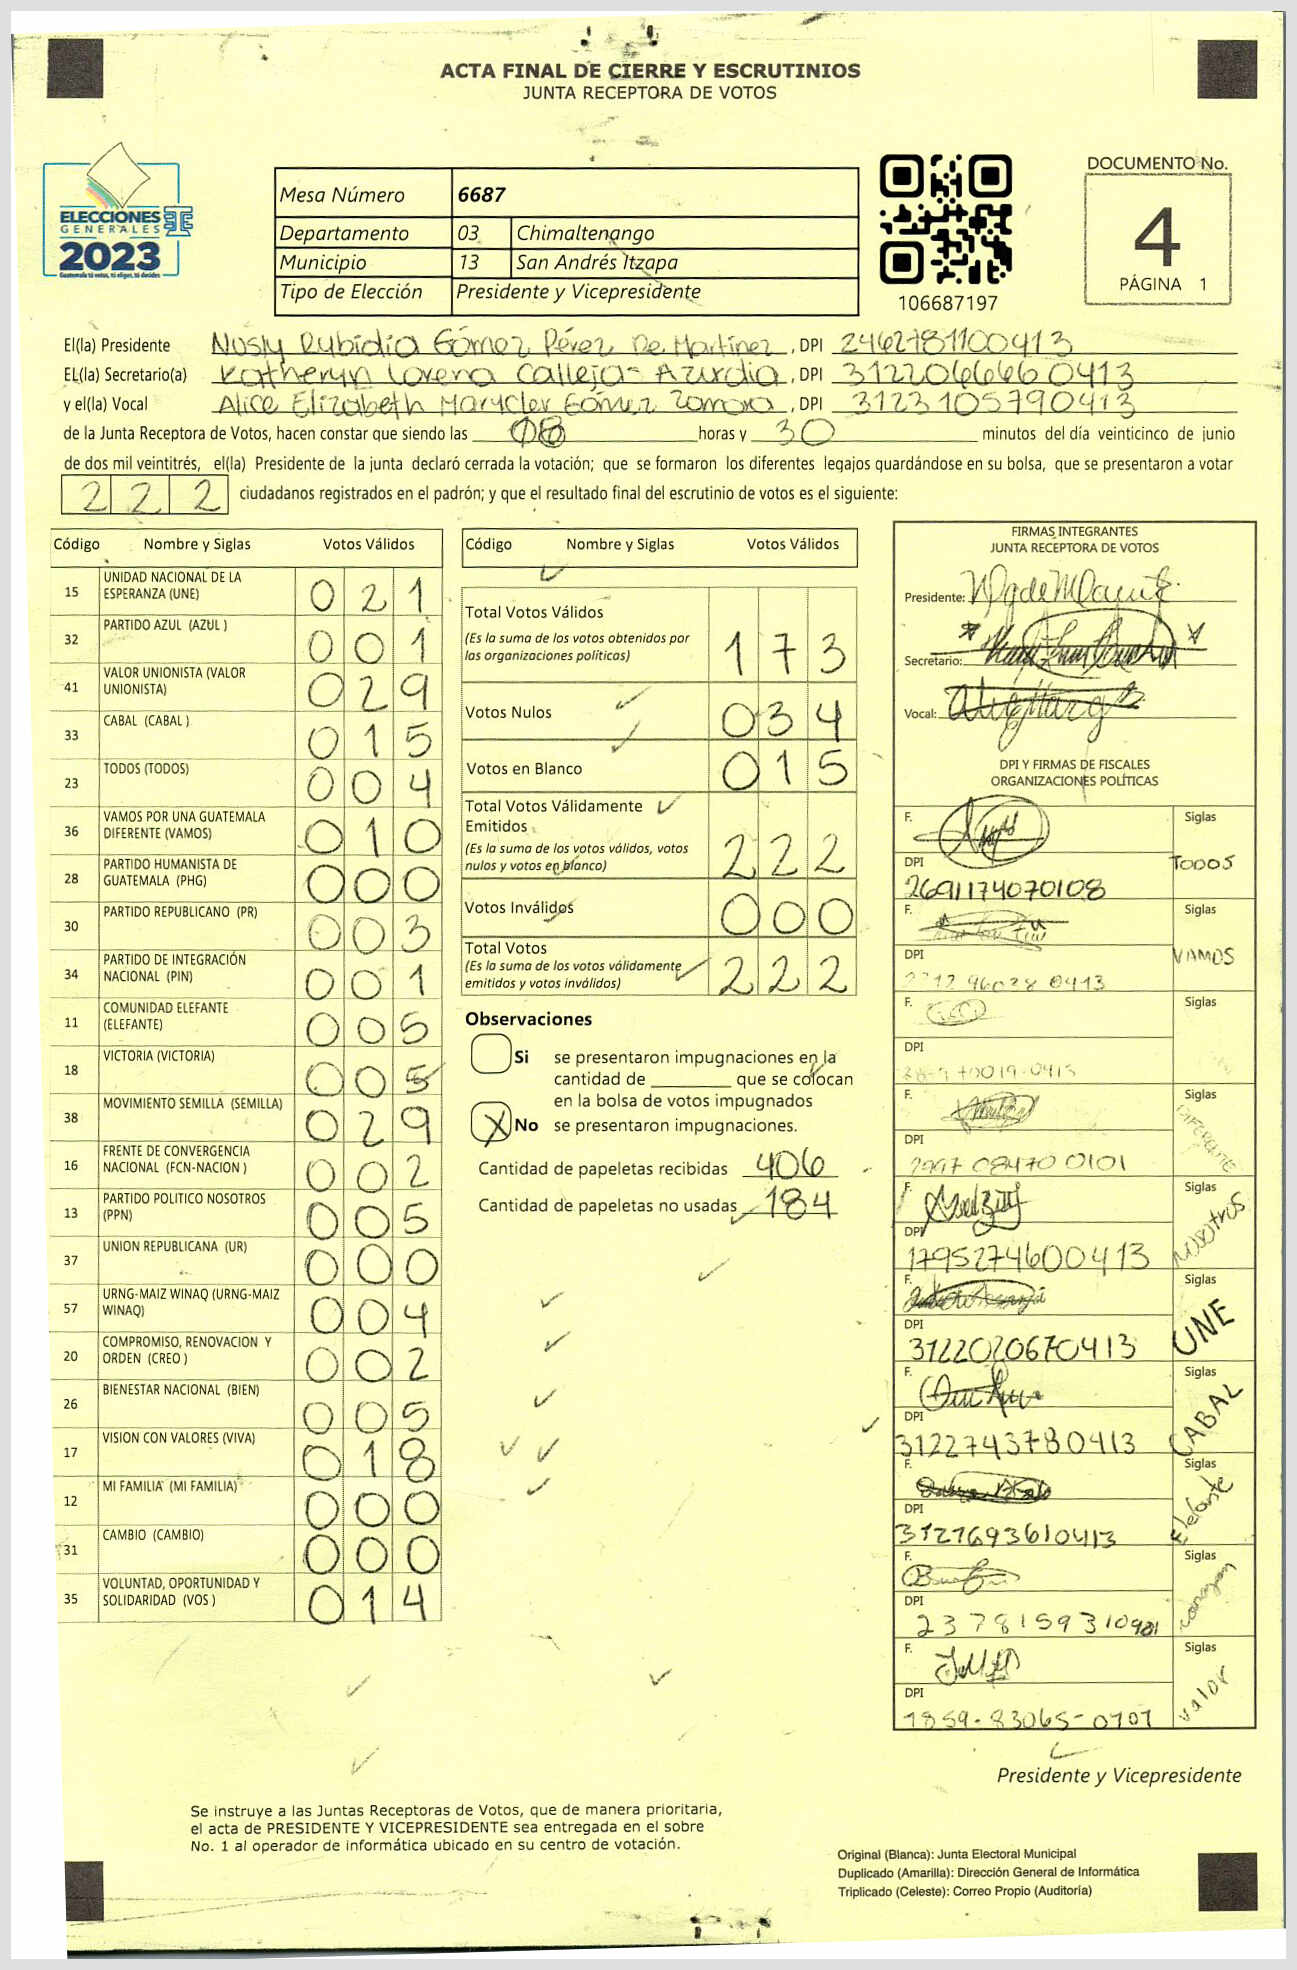 ACTA FINAL DE CIERRE Y ESCRUTINIOS
JUNTA RECEPTORA DE VOTOS
ELECCIONES
GENERALES
2023
Guatemala tú votas, tú eliges, tú decides
Mesa Número 6687
Departamento 03 Chimaltenango
Municipio 13 San Andrés Itzapa
Tipo de Elección Presidente y Vicepresidente
106687197
DOCUMENTO No.
4
PÁGINA 1
El(la) Presidente Nusly Rubidia Gómez Pérez De Martinez, DPI 2462781100413
EL(la) Secretario(a) Katheryn Lorena Callejas Azurdia, DPI 3122066660413
y el(la) Vocal Alice Elizabeth Gómez Zamora, DPI 3123105790413
de la Junta Receptora de Votos, hacen constar que siendo las horas y 30 minutos del día veinticinco de junio
de dos mil veintitrés, el(la) Presidente de la junta declaró cerrada la votación; que se formaron los diferentes legajos guardándose en su bolsa, que se presentaron a votar
222 ciudadanos registrados en el padrón; y que el resultado final del escrutinio de votos es el siguiente:
Código Nombre y Siglas Votos Válidos
15 UNIDAD NACIONAL DE LA ESPERANZA (UNE) 021
32 PARTIDO AZUL (AZUL ) 001
41 VALOR UNIONISTA (VALOR UNIONISTA) 029
33 CABAL (CABAL ) 015
23 TODOS (TODOS) 004
36 VAMOS POR UNA GUATEMALA DIFERENTE (VAMOS) 010
28 PARTIDO HUMANISTA DE GUATEMALA (PHG) 000
30 PARTIDO REPUBLICANO (PR) 003
34 PARTIDO DE INTEGRACIÓN NACIONAL (PIN) 001
11 COMUNIDAD ELEFANTE (ELEFANTE) 005
18 VICTORIA (VICTORIA) 005
38 MOVIMIENTO SEMILLA (SEMILLA) 029
16 FRENTE DE CONVERGENCIA NACIONAL (FCN-NACION ) 002
13 PARTIDO POLITICO NOSOTROS (PPN) 005
37 UNION REPUBLICANA (UR) 000
57 URNG-MAIZ WINAQ (URNG-MAIZ WINAQ) 004
20 COMPROMISO, RENOVACION Y ORDEN (CREO ) 002
26 BIENESTAR NACIONAL (BIEN) 005
17 VISION CON VALORES (VIVA) 018
12 MI FAMILIA (MI FAMILIA) 000
31 CAMBIO (CAMBIO) 000
35 VOLUNTAD, OPORTUNIDAD Y SOLIDARIDAD (VOS ) 014
Código Nombre y Siglas Votos Válidos
Total Votos Válidos 173
(Es la suma de los votos obtenidos por
las organizaciones políticas)
Votos Nulos 034
Votos en Blanco 015
Total Votos Válidamente
Emitidos 222
(Es la suma de los votos válidos, votos
nulos y votos en blanco)
Votos Inválidos 000
Total Votos 222
(Es la suma de los votos válidamente
emitidos y votos inválidos)
Observaciones
Si se presentaron impugnaciones en la
cantidad de ________ que se colocan
en la bolsa de votos impugnados
X No se presentaron impugnaciones.
Cantidad de papeletas recibidas 406
Cantidad de papeletas no usadas 184
FIRMAS INTEGRANTES
JUNTA RECEPTORA DE VOTOS
Presidente:
Secretario:
Vocal:
DPI Y FIRMAS DE FISCALES
ORGANIZACIONES POLÍTICAS
F. Siglas
DPI TODOS
2691174070108
F. Siglas
DPI VAMOS
F. Siglas
DPI
F. Siglas
DPI
2997 08470 0101
F. Siglas
DPI NOSOTROS
1795274600413
F. Siglas
DPI UNE
3122020670413
F. Siglas
DPI CABAL
3122743780413
F. Siglas
DPI Elefante
3121693610413
F. Siglas
DPI
2378159310401
F. Siglas
DPI valor
1859-83065-0707
Presidente y Vicepresidente
Se instruye a las Juntas Receptoras de Votos, que de manera prioritaria,
el acta de PRESIDENTE Y VICEPRESIDENTE sea entregada en el sobre
No. 1 al operador de informática ubicado en su centro de votación.
Original (Blanca): Junta Electoral Municipal
Duplicado (Amarilla): Dirección General de Informática
Triplicado (Celeste): Correo Propio (Auditoría)